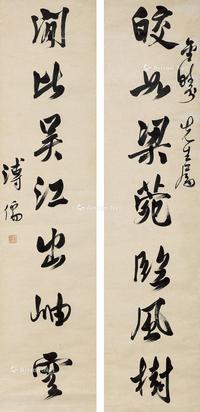 皎如梁苑臨風樹
先生屬
閒比吴江出岫雲
溥儒